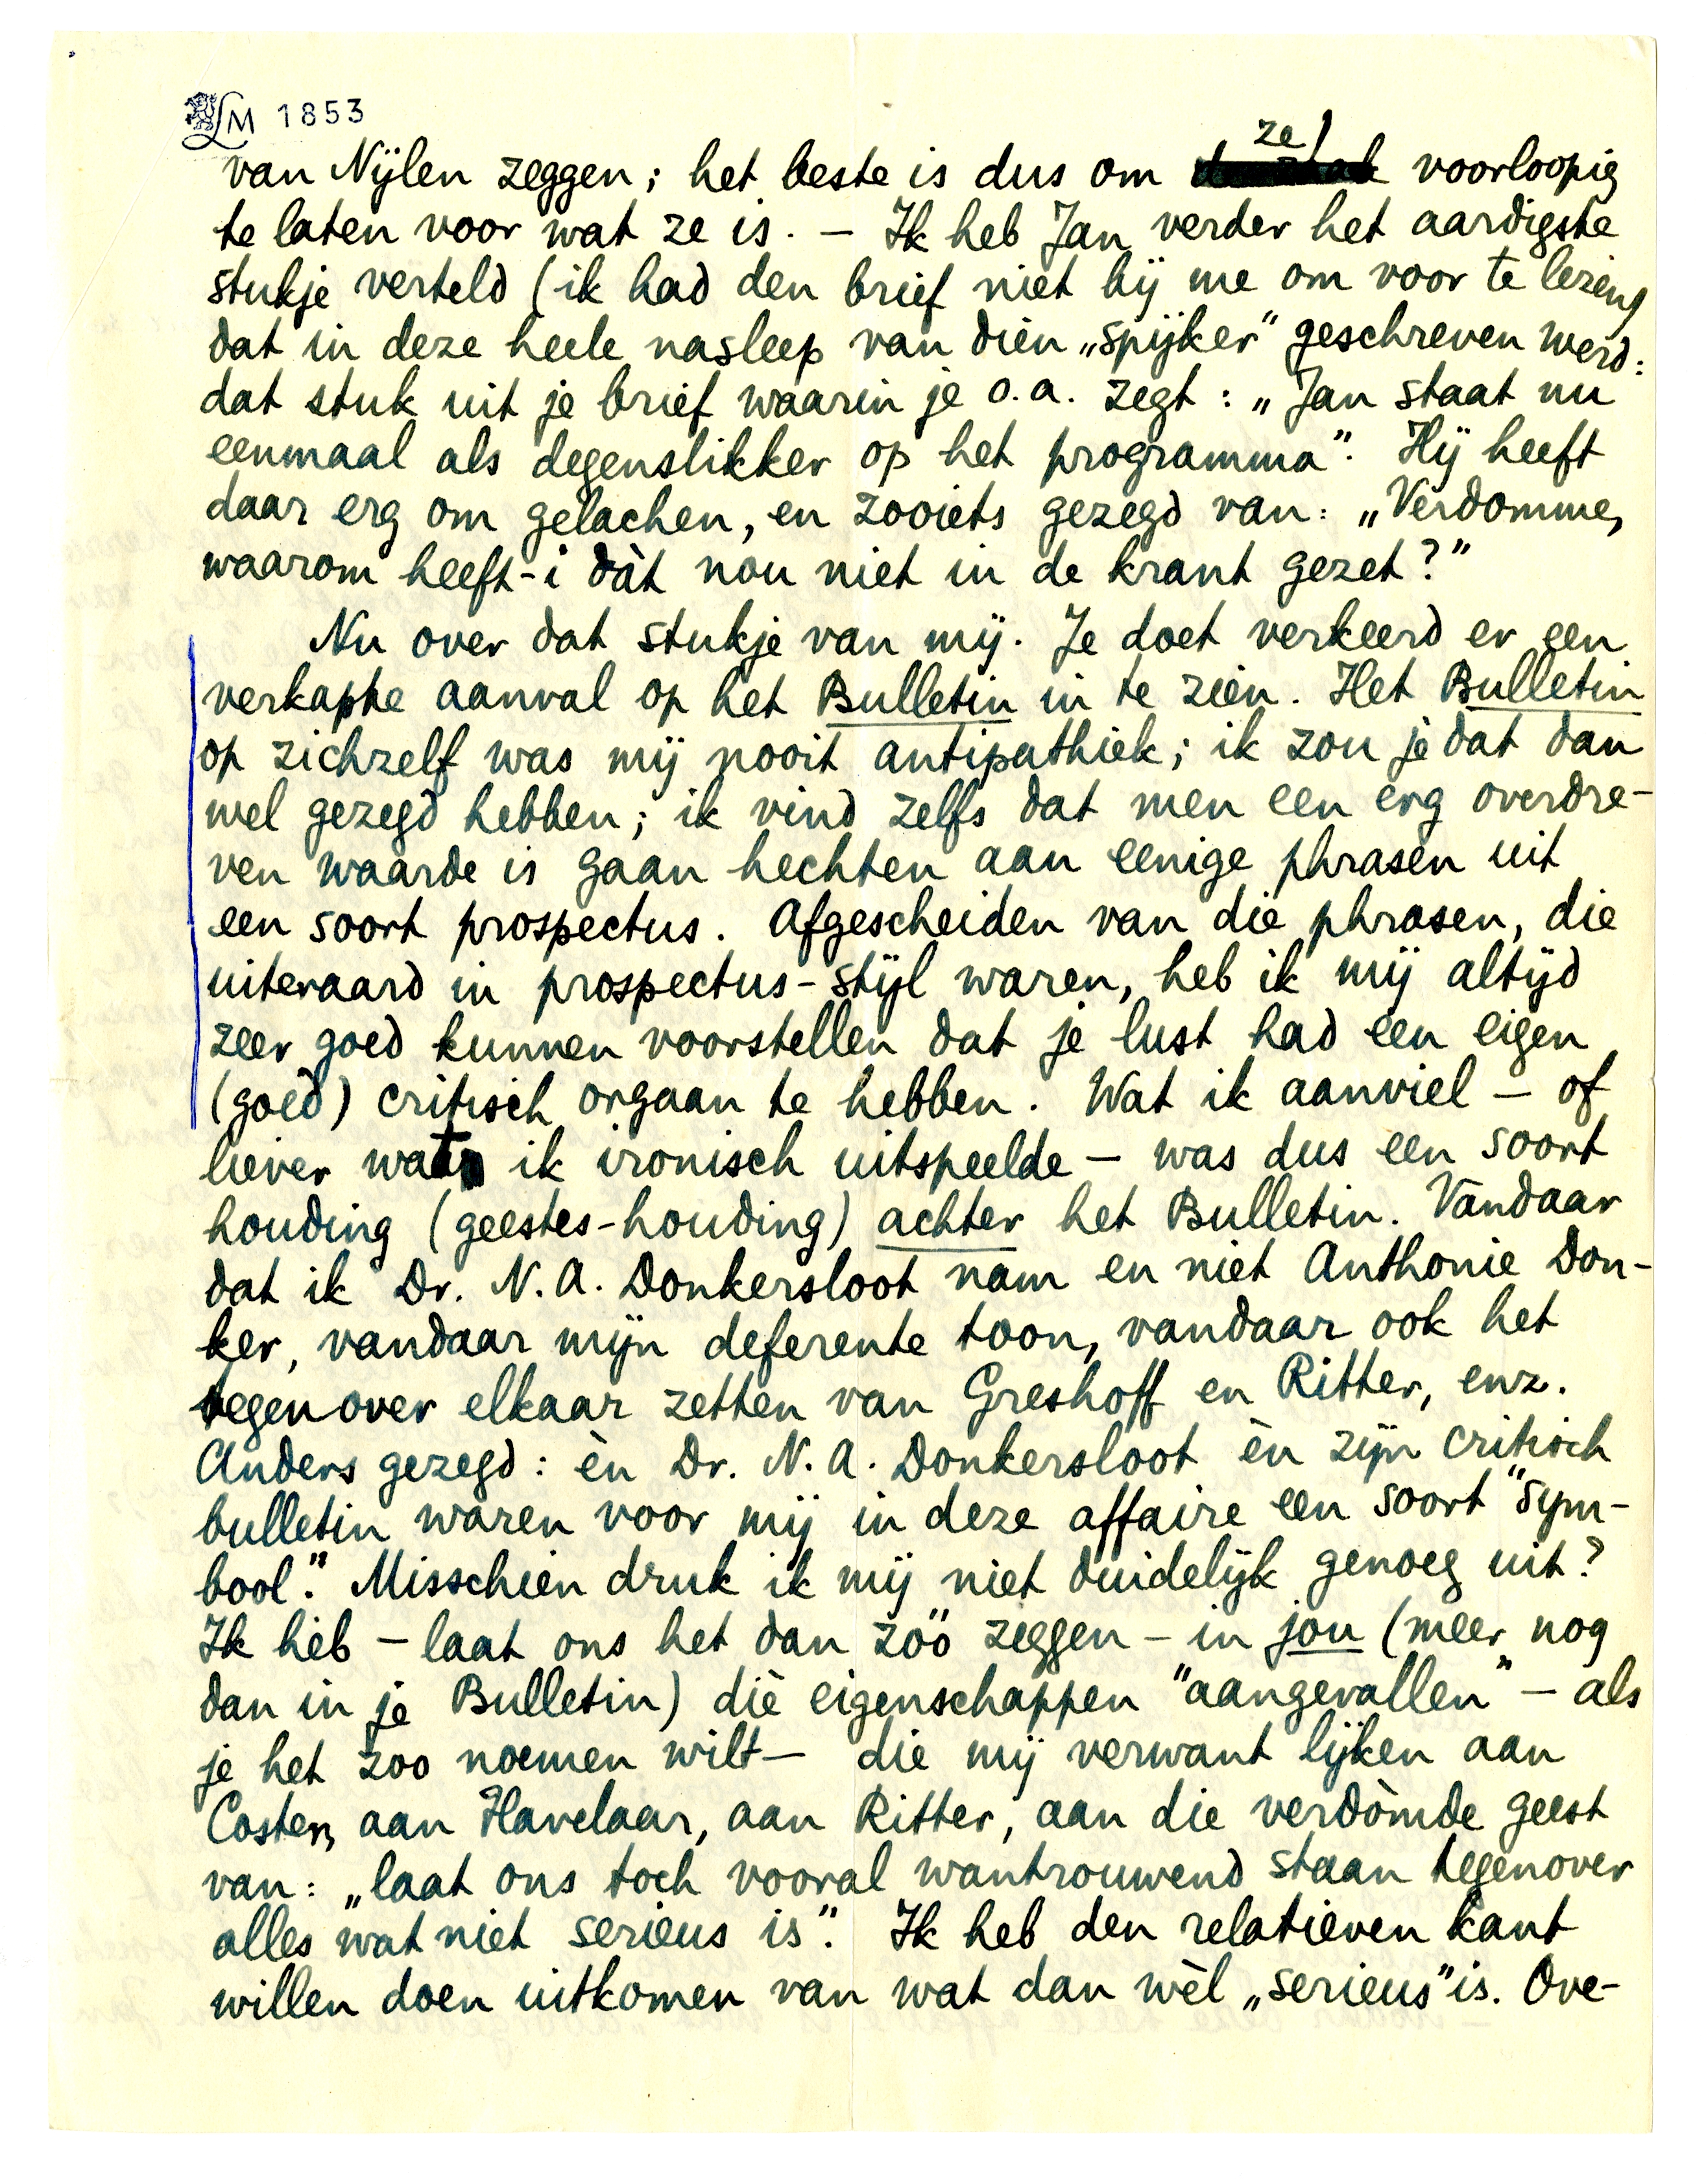 LM 1853
van Nijlen zeggen; het beste is dus om ze voorloopig
te laten voor wat ze is. – Ik heb Jan verder het aardigste
stukje verteld (ik had den brief niet bij me om voor te lezen)
dat in deze heele nasleep van dien „spijker” geschreven werd:
dat stuk uit je brief waarin je o.a. zegt: „Jan staat nu
eenmaal als degenslikker op het programma”. Hij heeft
daar erg om gelachen, en zooiets gezegd van: „Verdomme,
waarom heeft-i dàt nou niet in de krant gezet?”
Nu over dat stukje van mij. Je doet verkeerd er een
verkapte aanval op het Bulletin in te zien. Het Bulletin
op zichzelf was mij nooit antipathiek; ik zou je dat dan
wel gezegd hebben; ik vind zelfs dat men een erg overdre-
ven waarde is gaan hechten aan eenige phrasen uit
een soort prospectus. Afgescheiden van die phrasen, die
uiteraard in prospectus-stijl waren, heb ik mij altijd
zeer goed kunnen voorstellen dat je lust had een eigen
(goed) critisch orgaan te hebben. Wat ik aanviel – of
liever wat ik ironisch uitspeelde – was dus een soort
houding (geestes-houding) achter het Bulletin. Vandaar
dat ik Dr. N. A. Donkersloot nam en niet Anthonie Don-
ker, vandaar mijn deferente toon, vandaar ook het
tegenover elkaar zetten van Greshoff en Ritter, enz.
Anders gezegd: èn Dr. N. A. Donkersloot èn zijn critisch
bulletin waren voor mij in deze affaire een soort "sym-
bool". Misschien druk ik mij niet duidelijk genoeg uit?
Ik heb – laat ons het dan zóó zeggen – in jou (meer nog
dan in je Bulletin) dìe eigenschappen "aangevallen" – als
je het zoo noemen wilt – die mij verwant lijken aan
Coster, aan Havelaar, aan Ritter, aan die verdòmde geest
van: „laat ons toch vooral wantrouwend staan tegenover
alles wat niet serieus is”. Ik heb den relatieven kant
willen doen uitkomen van wat dan wèl „serieus” is. Ove-